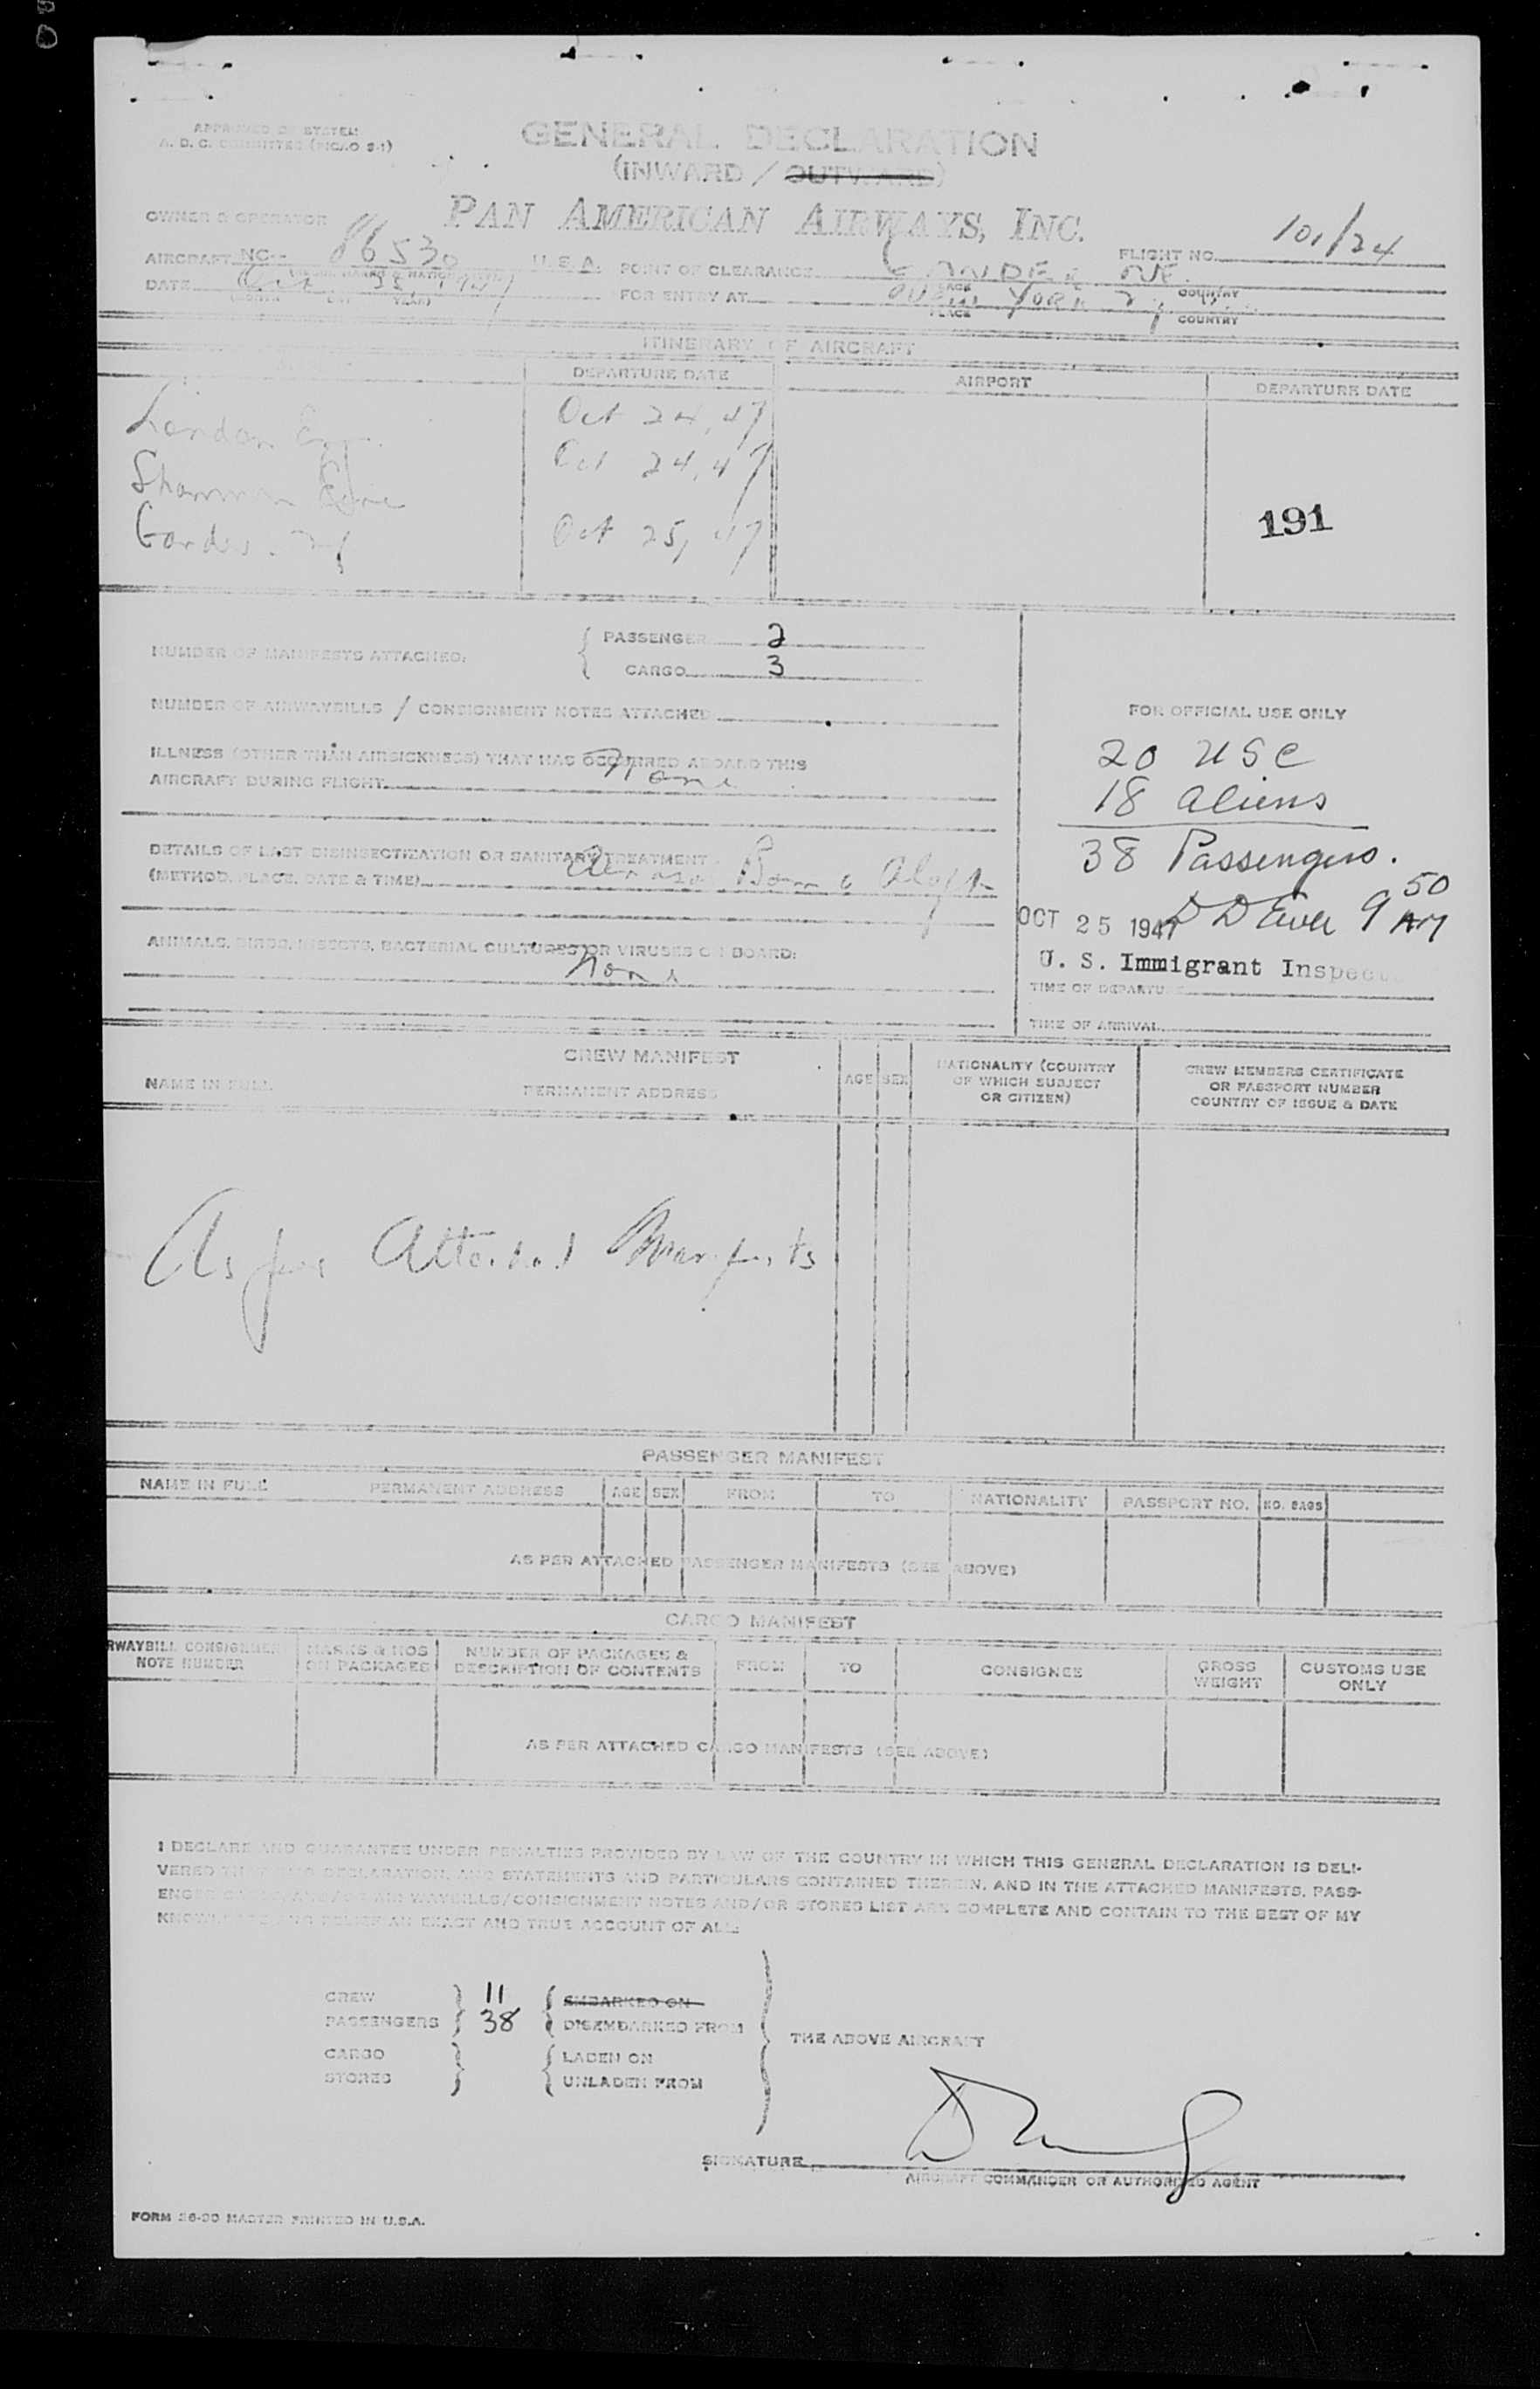 GENERAL DECLARATION
(INWARD / OUTWARD)
APPROVED BY SYSTEM
A. D. C. COMMITTEE (PICAO 9-1)
PAN AMERICAN AIRWAYS, INC.
OWNER & OPERATOR
AIRCRAFT NC- 86530 U.S.A. POINT OF CLEARANCE GANDER NF. FLIGHT NO. 101/24
DATE Oct 25, 1947 FOR ENTRY AT NEW YORK N.Y.
PLACE COUNTRY
ITINERARY OF AIRCRAFT
DEPARTURE DATE AIRPORT DEPARTURE DATE
London Eng. Oct 24, 47
Shannon Eire Oct 24, 47
Gander. Nf Oct 25, 47
191
NUMBER OF MANIFESTS ATTACHED: { PASSENGER 2
CARGO 3
NUMBER OF AIRWAYBILLS / CONSIGNMENT NOTES ATTACHED
ILLNESS (OTHER THAN AIRSICKNESS) THAT HAS OCCURRED ABOARD THIS
AIRCRAFT DURING FLIGHT None
DETAILS OF LAST DISINSECTIZATION OR SANITARY TREATMENT
(METHOD, PLACE, DATE & TIME) Aerosol Bomb Aloft
ANIMALS, BIRDS, INSECTS, BACTERIAL CULTURES OR VIRUSES ON BOARD:
None
FOR OFFICIAL USE ONLY
20 USC
18 aliens
38 Passengers.
OCT 25 1947 9 50 AM
U. S. Immigrant Inspec
TIME OF DEPARTURE
TIME OF ARRIVAL
CREW MANIFEST
NAME IN FULL PERMANENT ADDRESS AGE SEX NATIONALITY (COUNTRY OF WHICH SUBJECT OR CITIZEN) CREW MEMBERS CERTIFICATE OR PASSPORT NUMBER COUNTRY OF ISSUE & DATE
As per Attached Manifests
PASSENGER MANIFEST
NAME IN FULL PERMANENT ADDRESS AGE SEX FROM TO NATIONALITY PASSPORT NO. NO. BAGS
AS PER ATTACHED PASSENGER MANIFESTS (SEE ABOVE)
CARGO MANIFEST
RWAYBILL CONSIGNMENT NOTE NUMBER MARKS & NOS ON PACKAGES NUMBER OF PACKAGES & DESCRIPTION OF CONTENTS FROM TO CONSIGNEE GROSS WEIGHT CUSTOMS USE ONLY
AS PER ATTACHED CARGO MANIFESTS (SEE ABOVE)
I DECLARE AND GUARANTEE UNDER PENALTIES PROVIDED BY LAW OF THE COUNTRY IN WHICH THIS GENERAL DECLARATION IS DELI-
VERED THAT THIS DECLARATION, AND STATEMENTS AND PARTICULARS CONTAINED THEREIN, AND IN THE ATTACHED MANIFESTS, PASS-
ENGER WAYBILLS/CONSIGNMENT NOTES AND/OR STORES LIST ARE COMPLETE AND CONTAIN TO THE BEST OF MY
KNOWLEDGE AND BELIEF AN EXACT AND TRUE ACCOUNT OF ALL:
CREW 11 EMBARKED ON
PASSENGERS 38 DISEMBARKED FROM
THE ABOVE AIRCRAFT
CARGO LADEN ON
STORES UNLADEN FROM
SIGNATURE
AIRCRAFT COMMANDER OR AUTHORIZED AGENT
FORM 26-30 MASTER PRINTED IN U.S.A.